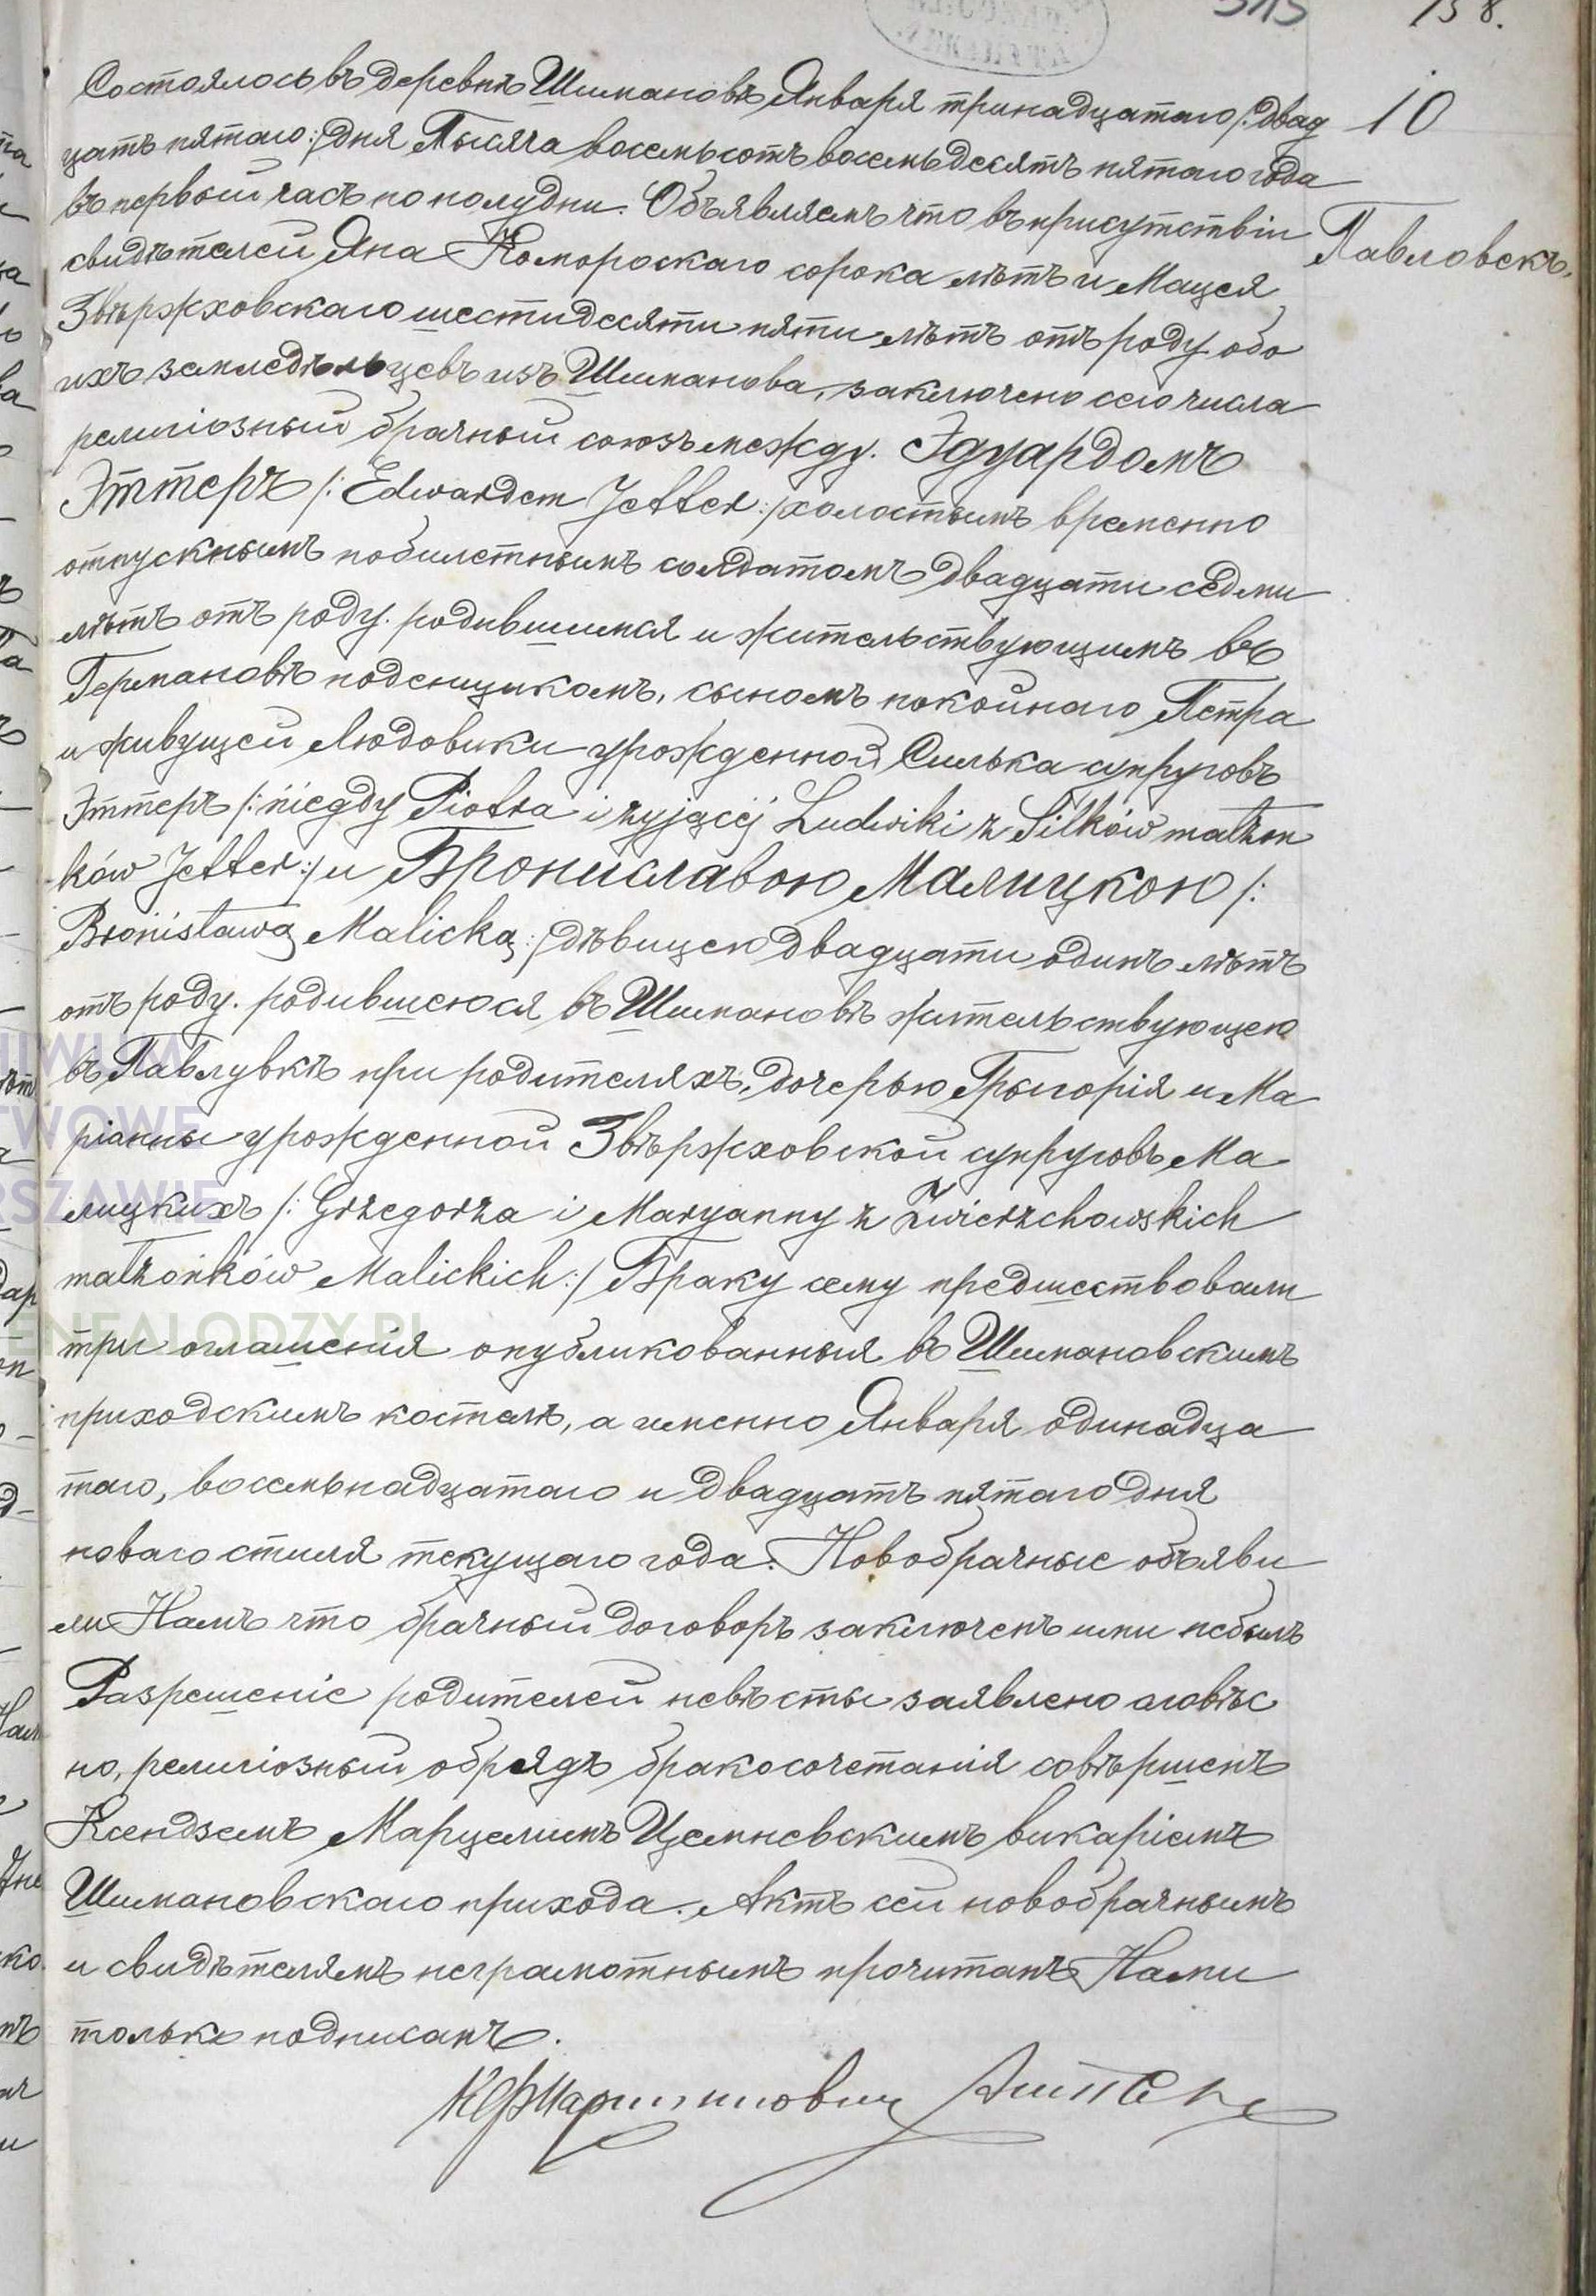 315 138.
10
Павловекъ,
Состоялось въ деревнѣ Шимановѣ Января тринадцатаго /: двад
цать пятаго :/ дня Тысяча восемьсотъ восемьдесятъ пятаго года
въ первый часъ по полудни. Объявляемъ что въ присутствіи
свидѣтелей Яна Комороскаго сорока лѣтъ и Мацея
Звѣржховскаго шестидесяти пяти лѣтъ отъ роду обо
ихъ земледѣльцевъ изъ Шиманова, заключено сего числа
религіозный брачный союзъ между. Эдуардомъ
Эттеръ /: Edwardem Jetter :/ холостымъ временно
отпускнымъ побилетнымъ солдатомъ двадцати седми
лѣтъ отъ роду. родившимся и жительствующимъ въ
Германовѣ поденщикомъ, сыномъ покойнаго Петра
и живущей Людовики урожденной Силька супруговъ
Эттеръ /: niegdy Piotra i żyjącéj Ludwiki z Silków małżon
ków Jetter :/ и Брониславою Малицкою /:
Bronisławą Malicką :/ дѣвицею двадцати одинъ лѣтъ
отъ роду. родившеюся въ Шимановѣ жительствующею
въ Павлувкѣ при родителяхъ, дочерью Грыгорія и Ма
ріанны урожденной Звѣржховской супруговъ Ма
лицкихъ /: Grzegorza i Maryanny z Zwierzchowskich
małżonków Malickich :/ Браку сему предшествовали
три оглашенія опубликованныя въ Шимановскимъ
приходскимъ костелѣ, а именно Января одинадца
таго, восемьнадцатаго и двадцать пятаго дня
новаго стиля текущаго года. Новобрачные объяви
ли Намъ что брачный договоръ заключенъ ими небылъ
Разрешеніе родителей невѣсты заявлено словѣс
но, религіозный обрядъ бракосочетанія совѣршенъ
Ксендземъ Марцелимъ Цемневскимъ викаріемъ
Шимановскаго прихода. Актъ сей новобрачнымъ
и свидѣтелямъ неграмотнымъ прочитанъ Нами
только подписанъ.